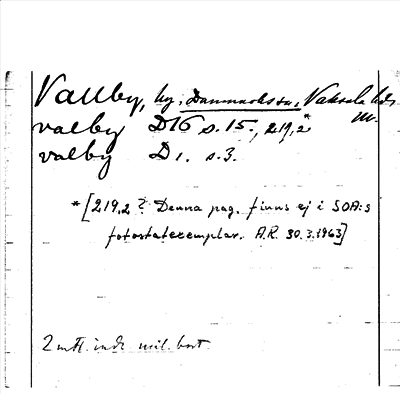 Vallby, by, Danmarks sn, Vaksala hd.
valby D16 s. 15., 219,2*
valby D1. s. 3.
* [219,2? Denna pag. finns ej i SOA:s
fotostatexemplar. A.R. 30.3.1963]
2 mtl.